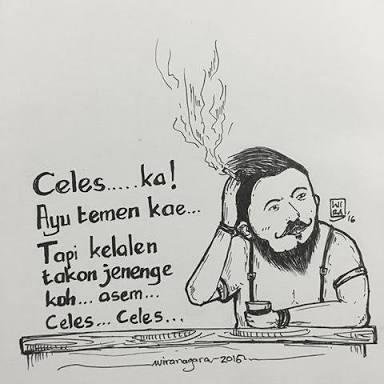 Celes.....ka!
Ayu temen kae...
Tapi kelalen
takon jenenge
koh... asem...
Celes... Celes...
WIRA
'16
wiranagara - 2016